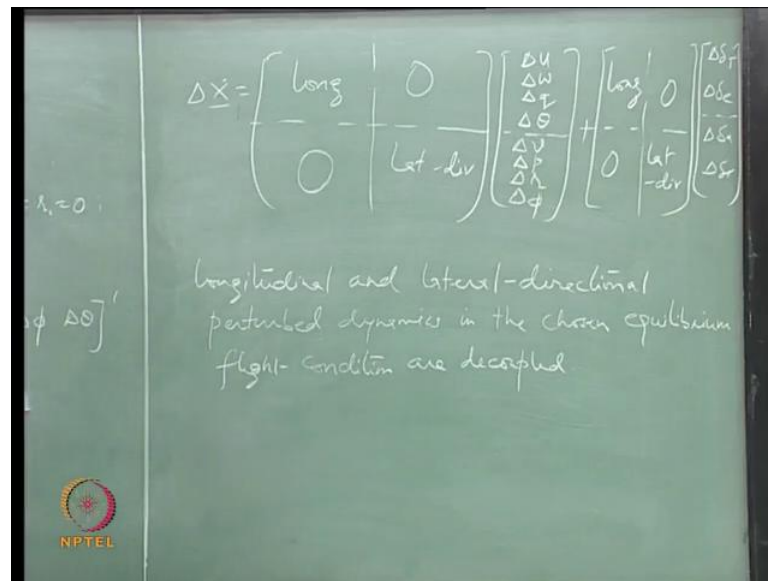 = r₁ = 0 ;
Δϕ Δθ]'
ΔẊ = [ long | 0 ; 0 | lat-dir ] [ Δu Δw Δq Δθ Δv Δp Δr Δϕ ] + [ long | 0 ; 0 | lat-dir ] [ ΔδT Δδe Δδa Δδr ]
Longitudinal and lateral-directional
perturbed dynamics in the chosen equilibrium
flight-condition are decoupled.
NPTEL